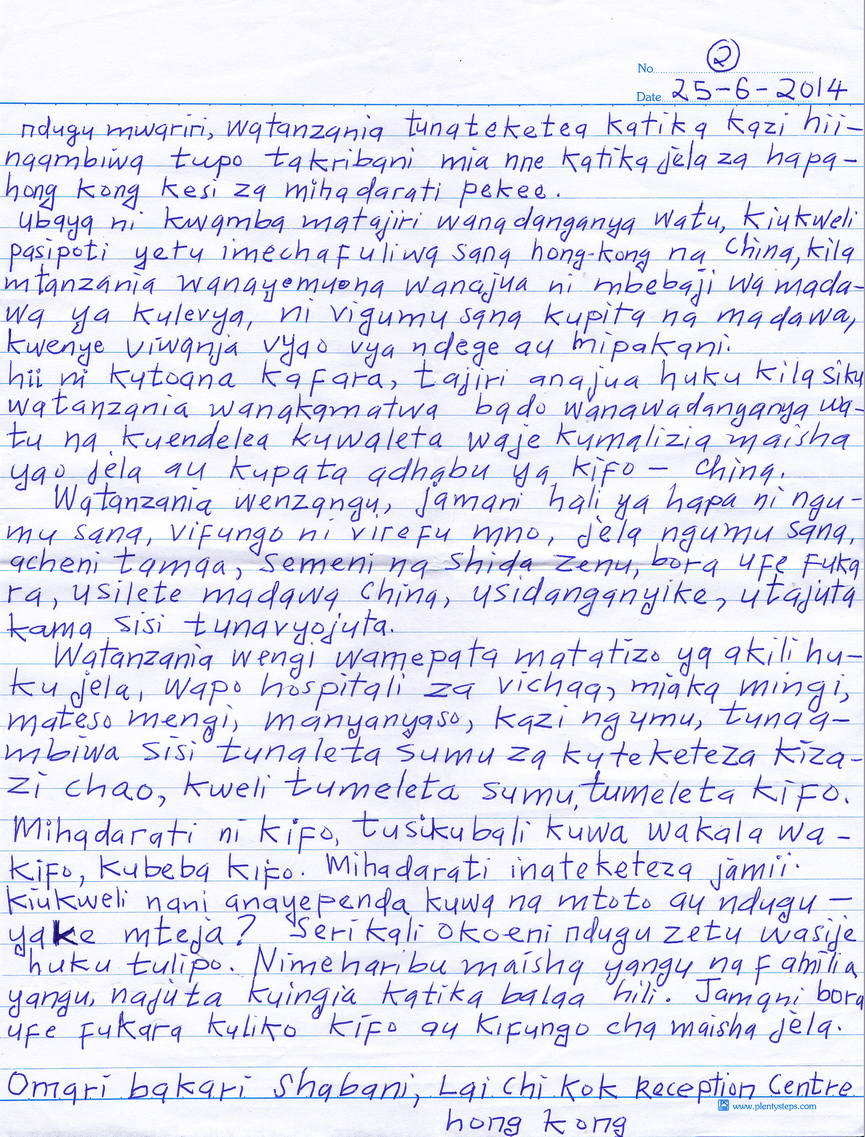 No ②
Date 25-6-2014
ndugu mwariri, watanzania tunateketea katika kazi hii-
naambiwa tupo takribani mia nne katika jela za hapa-
hong kong kesi za mihadarati pekee.
ubaya ni kwamba matajiri wanadanganya watu, kiukweli
pasipoti yetu imechafuliwa sana hong-kong na China, kila
mtanzania wanayemuona wanajua ni mbebaji wa mada-
wa ya kulevya, ni vigumu sana kupita na madawa,
kwenye viwanja vyao vya ndege au mipakani.
hii ni kutoana kafara, tajiri anajua huku kila siku
watanzania wanakamatwa bado wanawadanganya wa-
tu na kuendelea kuwaleta waje kumalizia maisha
yao jela au kupata adhabu ya kifo - China.
Watanzania wenzangu, jamani hali ya hapa ni ngu-
mu sana, vifungo ni virefu mno, jela ngumu sana,
acheni tamaa, semeni na shida zenu, bora ufe fuka
ra, usilete madawa China, usidanganyike, utajuta
kama sisi tunavyojuta.
Watanzania wengi wamepata matatizo ya akili hu-
ku jela, wapo hospitali za vichaa, miaka mingi,
mateso mengi, manyanyaso, kazi ngumu, tunaa-
mbiwa sisi tunaleta sumu za kuteketeza kiza-
zi chao, kweli tumeleta sumu, tumeleta kifo.
Mihadarati ni kifo, tusikubali kuwa wakala wa-
kifo, kubeba kifo. Mihadarati inateketeza jamii.
kiukweli nani anayependa kuwa na mtoto au ndugu -
yake mteja? Serikali okoeni ndugu zetu wasije
huku tulipo. Nimeharibu maisha yangu na familia
yangu, najuta kuingia katika balaa hili. Jamani bora
ufe fukara kuliko kifo au kifungo cha maisha jela.
Omari bakari Shabani, Lai Chi Kok Reception Centre
www.plentysteps.com
hong kong